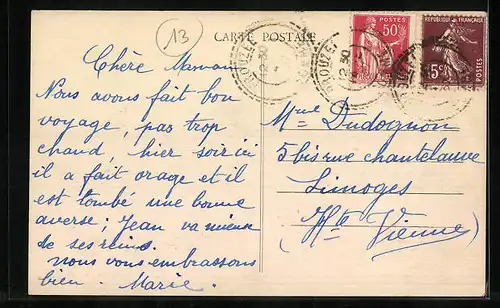 13
CARTE POSTALE
Chère Maman
Nous avons fait bon
voyage, pas trop
chaud hier soir ici
il a fait orage et il
est tombé une bonne
averse ; Jean va mieux
de ses reins.
nous vous embrassons
bien. Marie.
12 30
50c
POSTES
RÉPUBLIQUE FRANÇAISE
15c
Mme Dudognon
5 bis rue chantelauve
Limoges
(Hte Vienne)